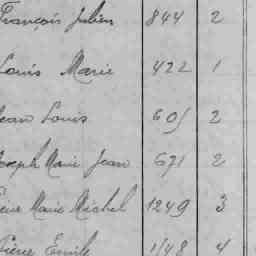 François Julien 844 2
Louis Marie 422 1
Jean Louis 605 2
Joseph Marie Jean 671 2
Marie Michel 1249 3
Pierre Emile 1148 4